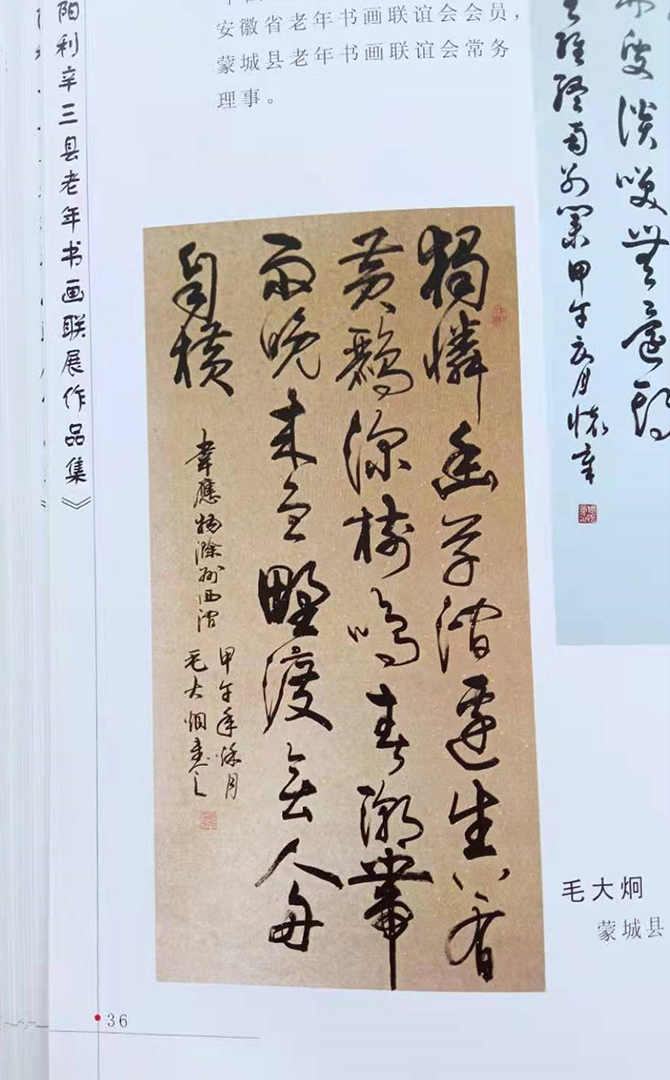 阳利辛三县老年书画联展作品集》
安徽省老年书画联谊会会员，
蒙城县老年书画联谊会常务
理事。
獨憐幽草澗邊生上有
黄鸝深樹鳴春潮帶
雨晚来急野渡無人舟
自横
韋應物滁州西澗
甲午年月
毛大炯書之
甲午月
毛大炯
蒙城县
36